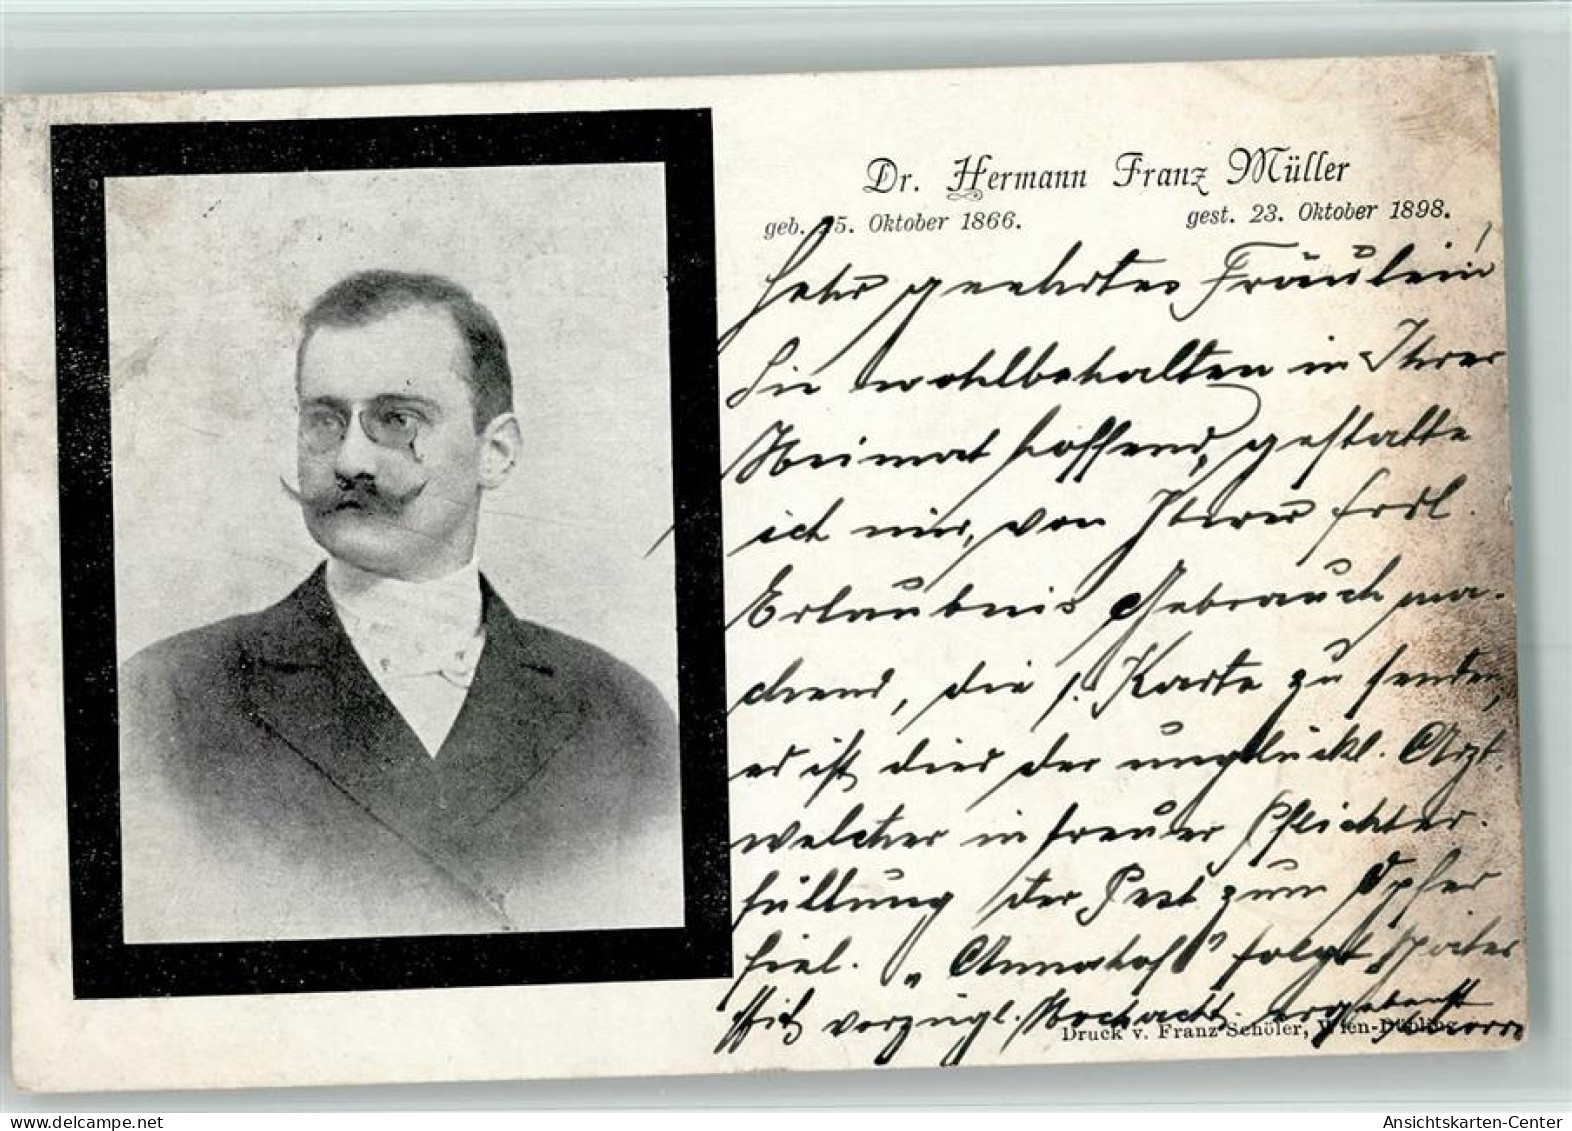 Dr. Hermann Franz Müller
geb. 5. Oktober 1866. gest. 23. Oktober 1898.
Sehr geehrtes Fräulein!
Sie wohlbehalten in Ihrer
Heimat hoffend, gestatte
ich mir, von Ihrer frdl.
Erlaubnis Gebrauch ma-
chend, die 1. Karte zu senden,
es ist dies der unglückl. Arzt,
welcher in treuer Pflichter-
füllung der Pest zum Opfer
fiel. „Annahof" folgt später
vorzügl. Hochacht. ergebenst
Druck v. Franz Schöler, Wien-Döbling
delcampe.net
Ansichtskarten-Center